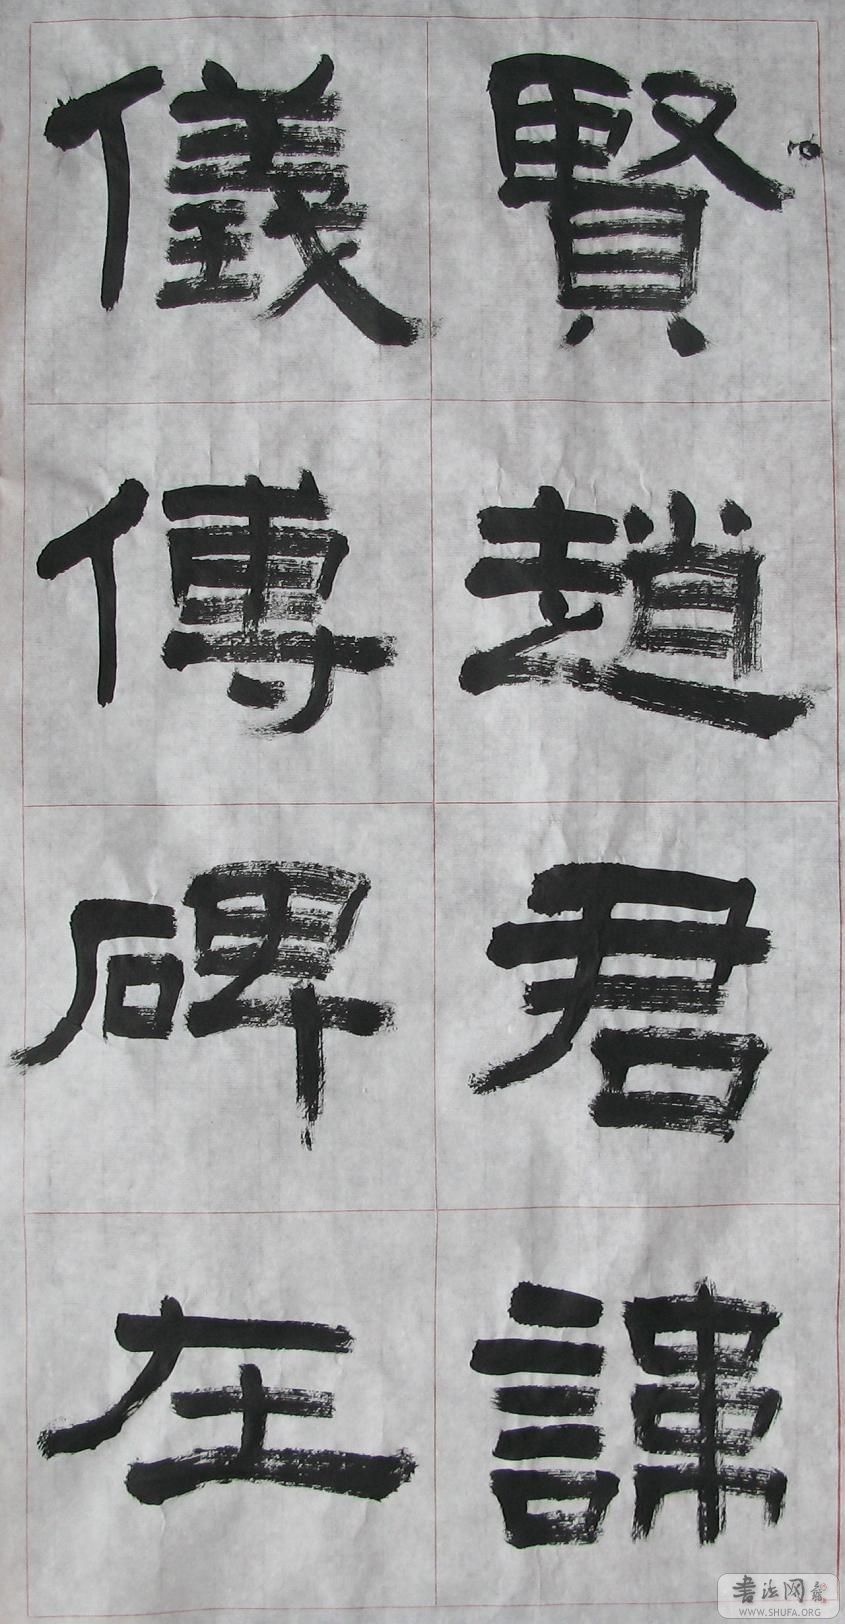 賢趙君諱
儀傅碑在
書法网
WWW.SHUFA.ORG